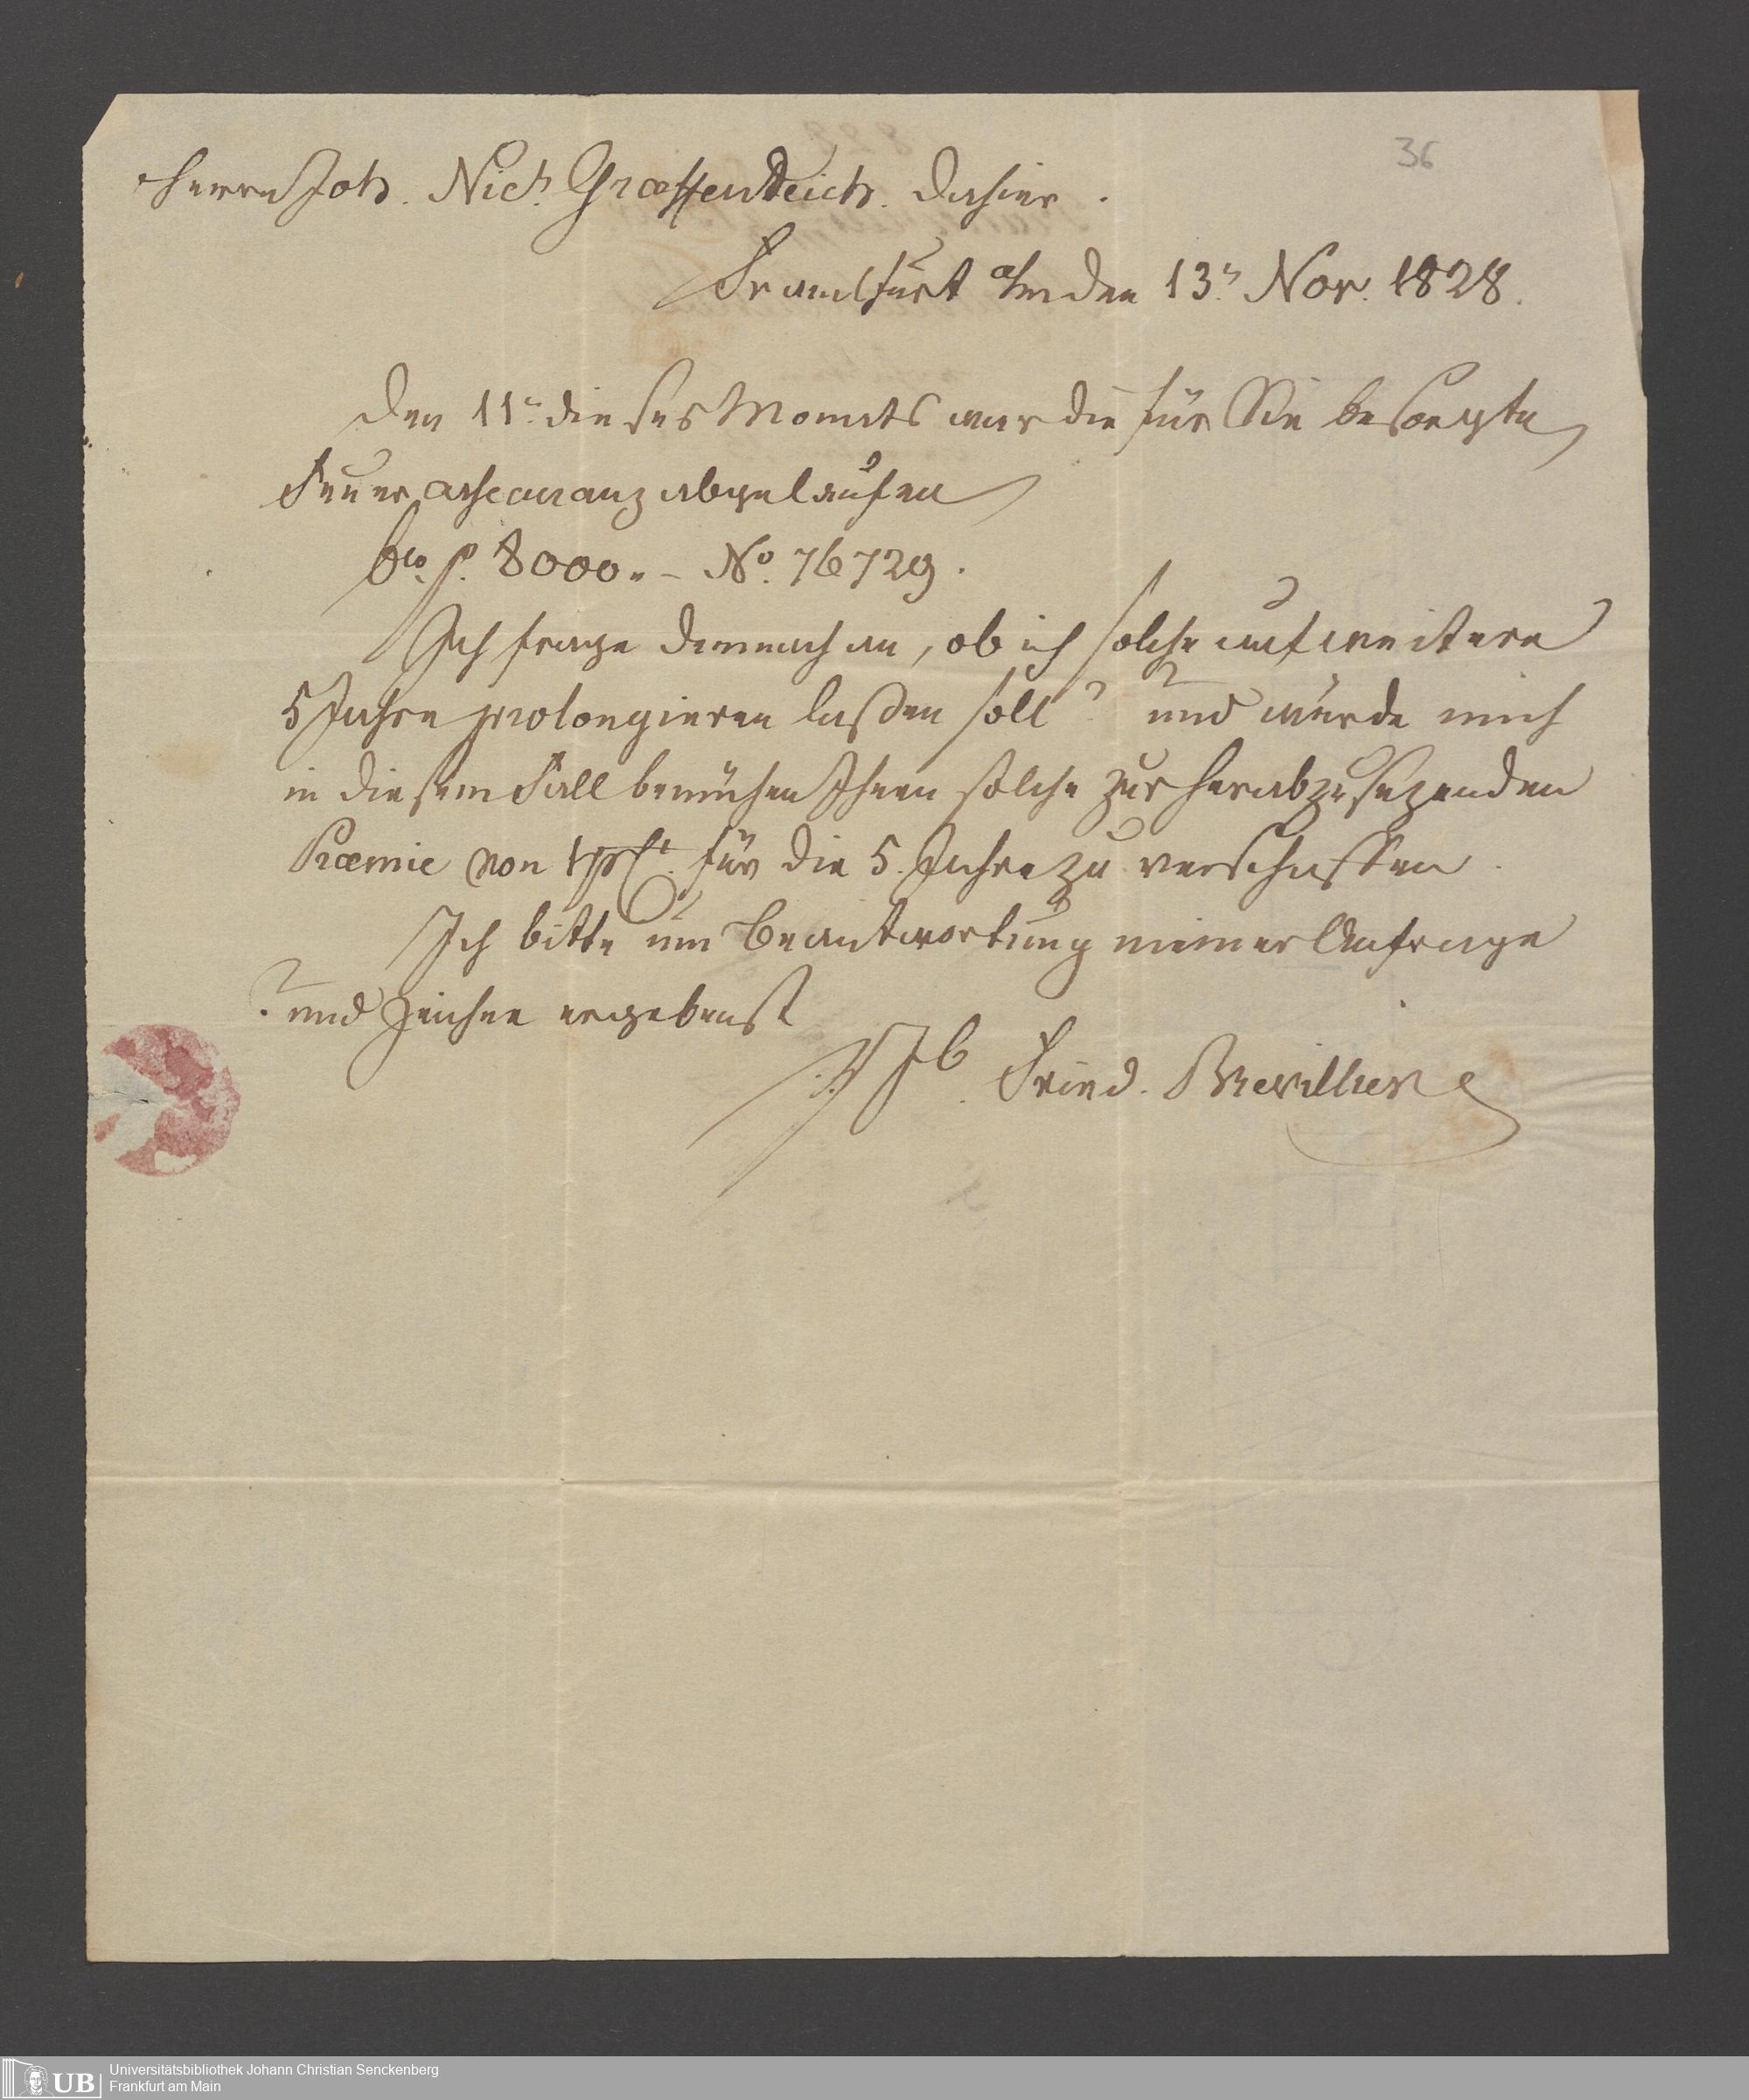 36
Herrn Joh. Nich. Graeffendeich. dahier.
Frankfurt a/m den 13n. Nov. 1828.
Den 11n. dieses Monats war die für Sie besorgte
Feuer assecuranz abgelaufen
f. 8000.- No. 76729.
Ich frage demnach an, ob ich solche auf weitere
5 Jahre prolongieren laßen soll? und würde mich
in diesem Fall bemühen Ihnen solche zur herabzusezenden
Præmie von 1 pCt. für die 5. Jahre zu verschaffen.
Ich bitte um Beantwortung meiner Anfrage
und zeichne ergebenst
Jb. Fried. Brevillier
UB Universitätsbibliothek Johann Christian Senckenberg
Frankfurt am Main